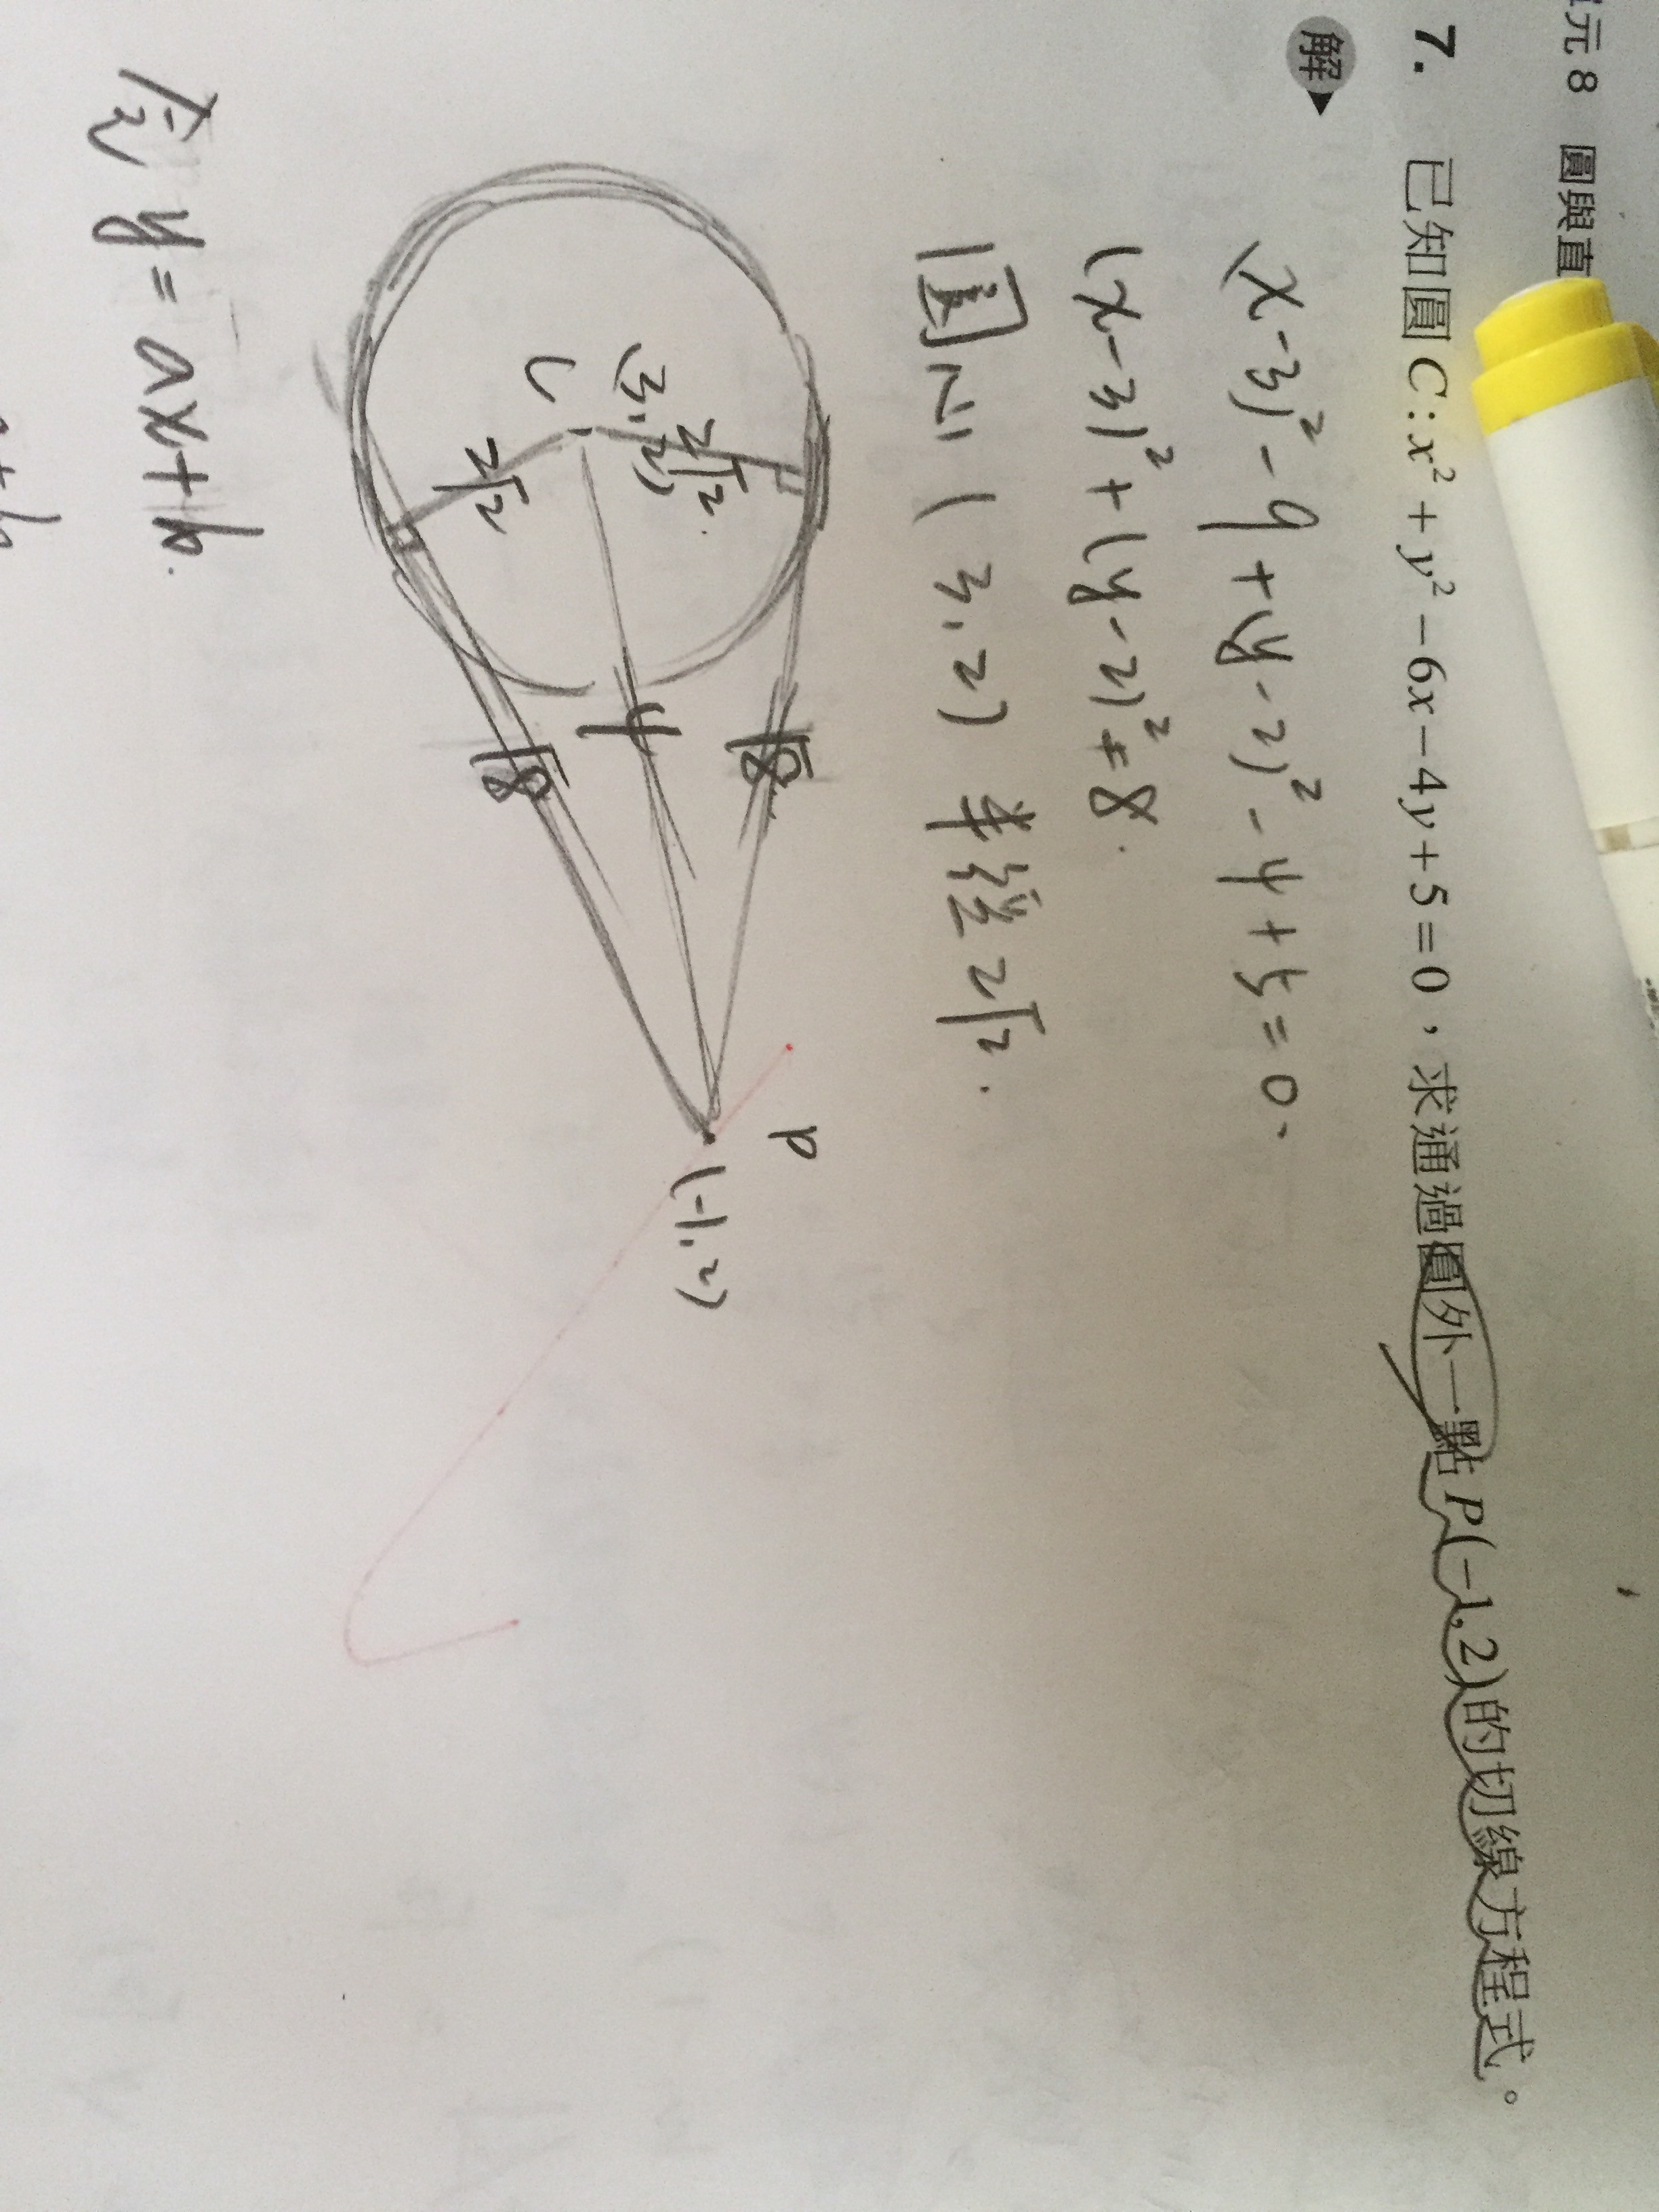 元 8 圓與直
7. 已知圓 C: x² + y² − 6x − 4y + 5 = 0，求通過圓外一點 P(−1, 2) 的切線方程式。
解
(x-3)² - 9 + (y-2)² - 4 + 5 = 0.
(x-3)² + (y-2)² = 8.
圓心 (3, 2) 半徑 2√2.
P
(-1, 2)
(3, 2)
2√2.
√8
C
4
2√2
√8
y = ax + b.